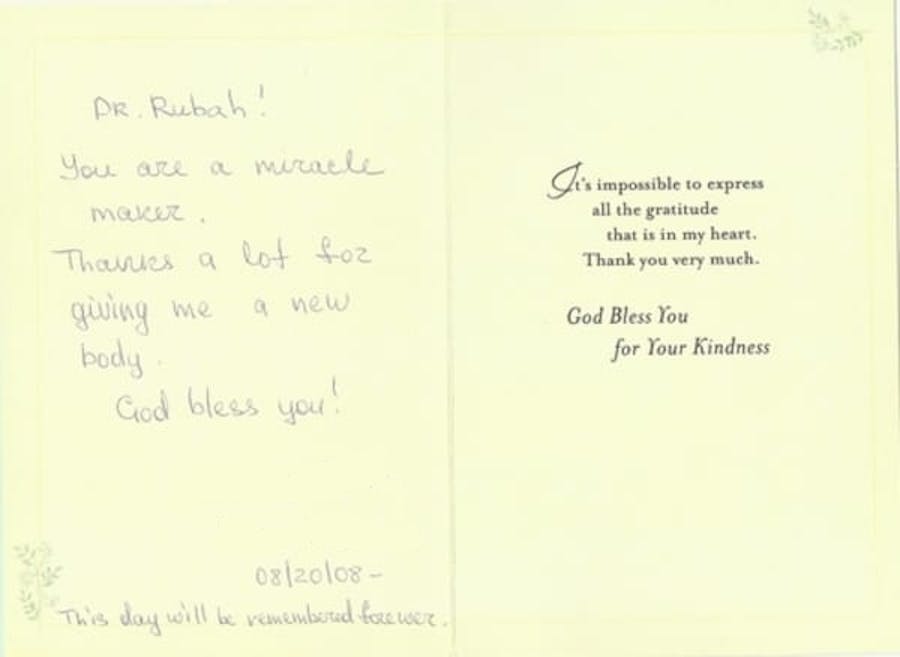 Dr. Rubah!
You are a miracle
maker.
Thanks a lot for
giving me a new
body.
God bless you!
08/20/08 -
This day will be remembered forewer.
It's impossible to express
all the gratitude
that is in my heart.
Thank you very much.
God Bless You
for Your Kindness